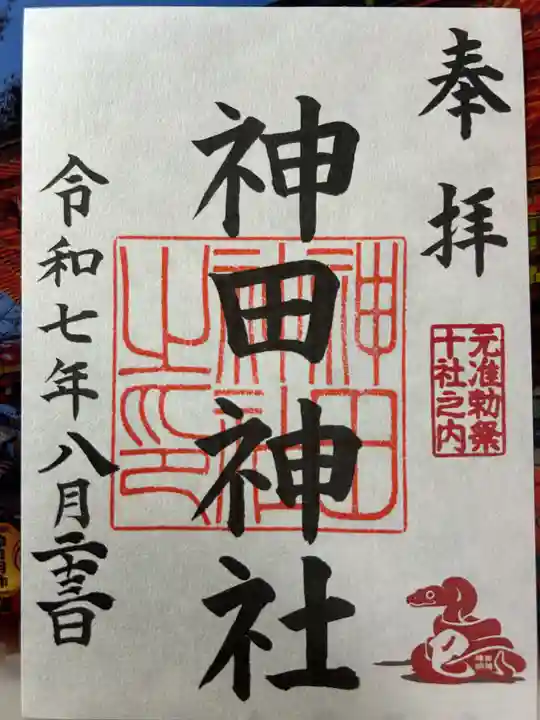 奉拝
元准勅祭
十社之内
神田神社
神田神社之印
令和七年八月二十三日
巳